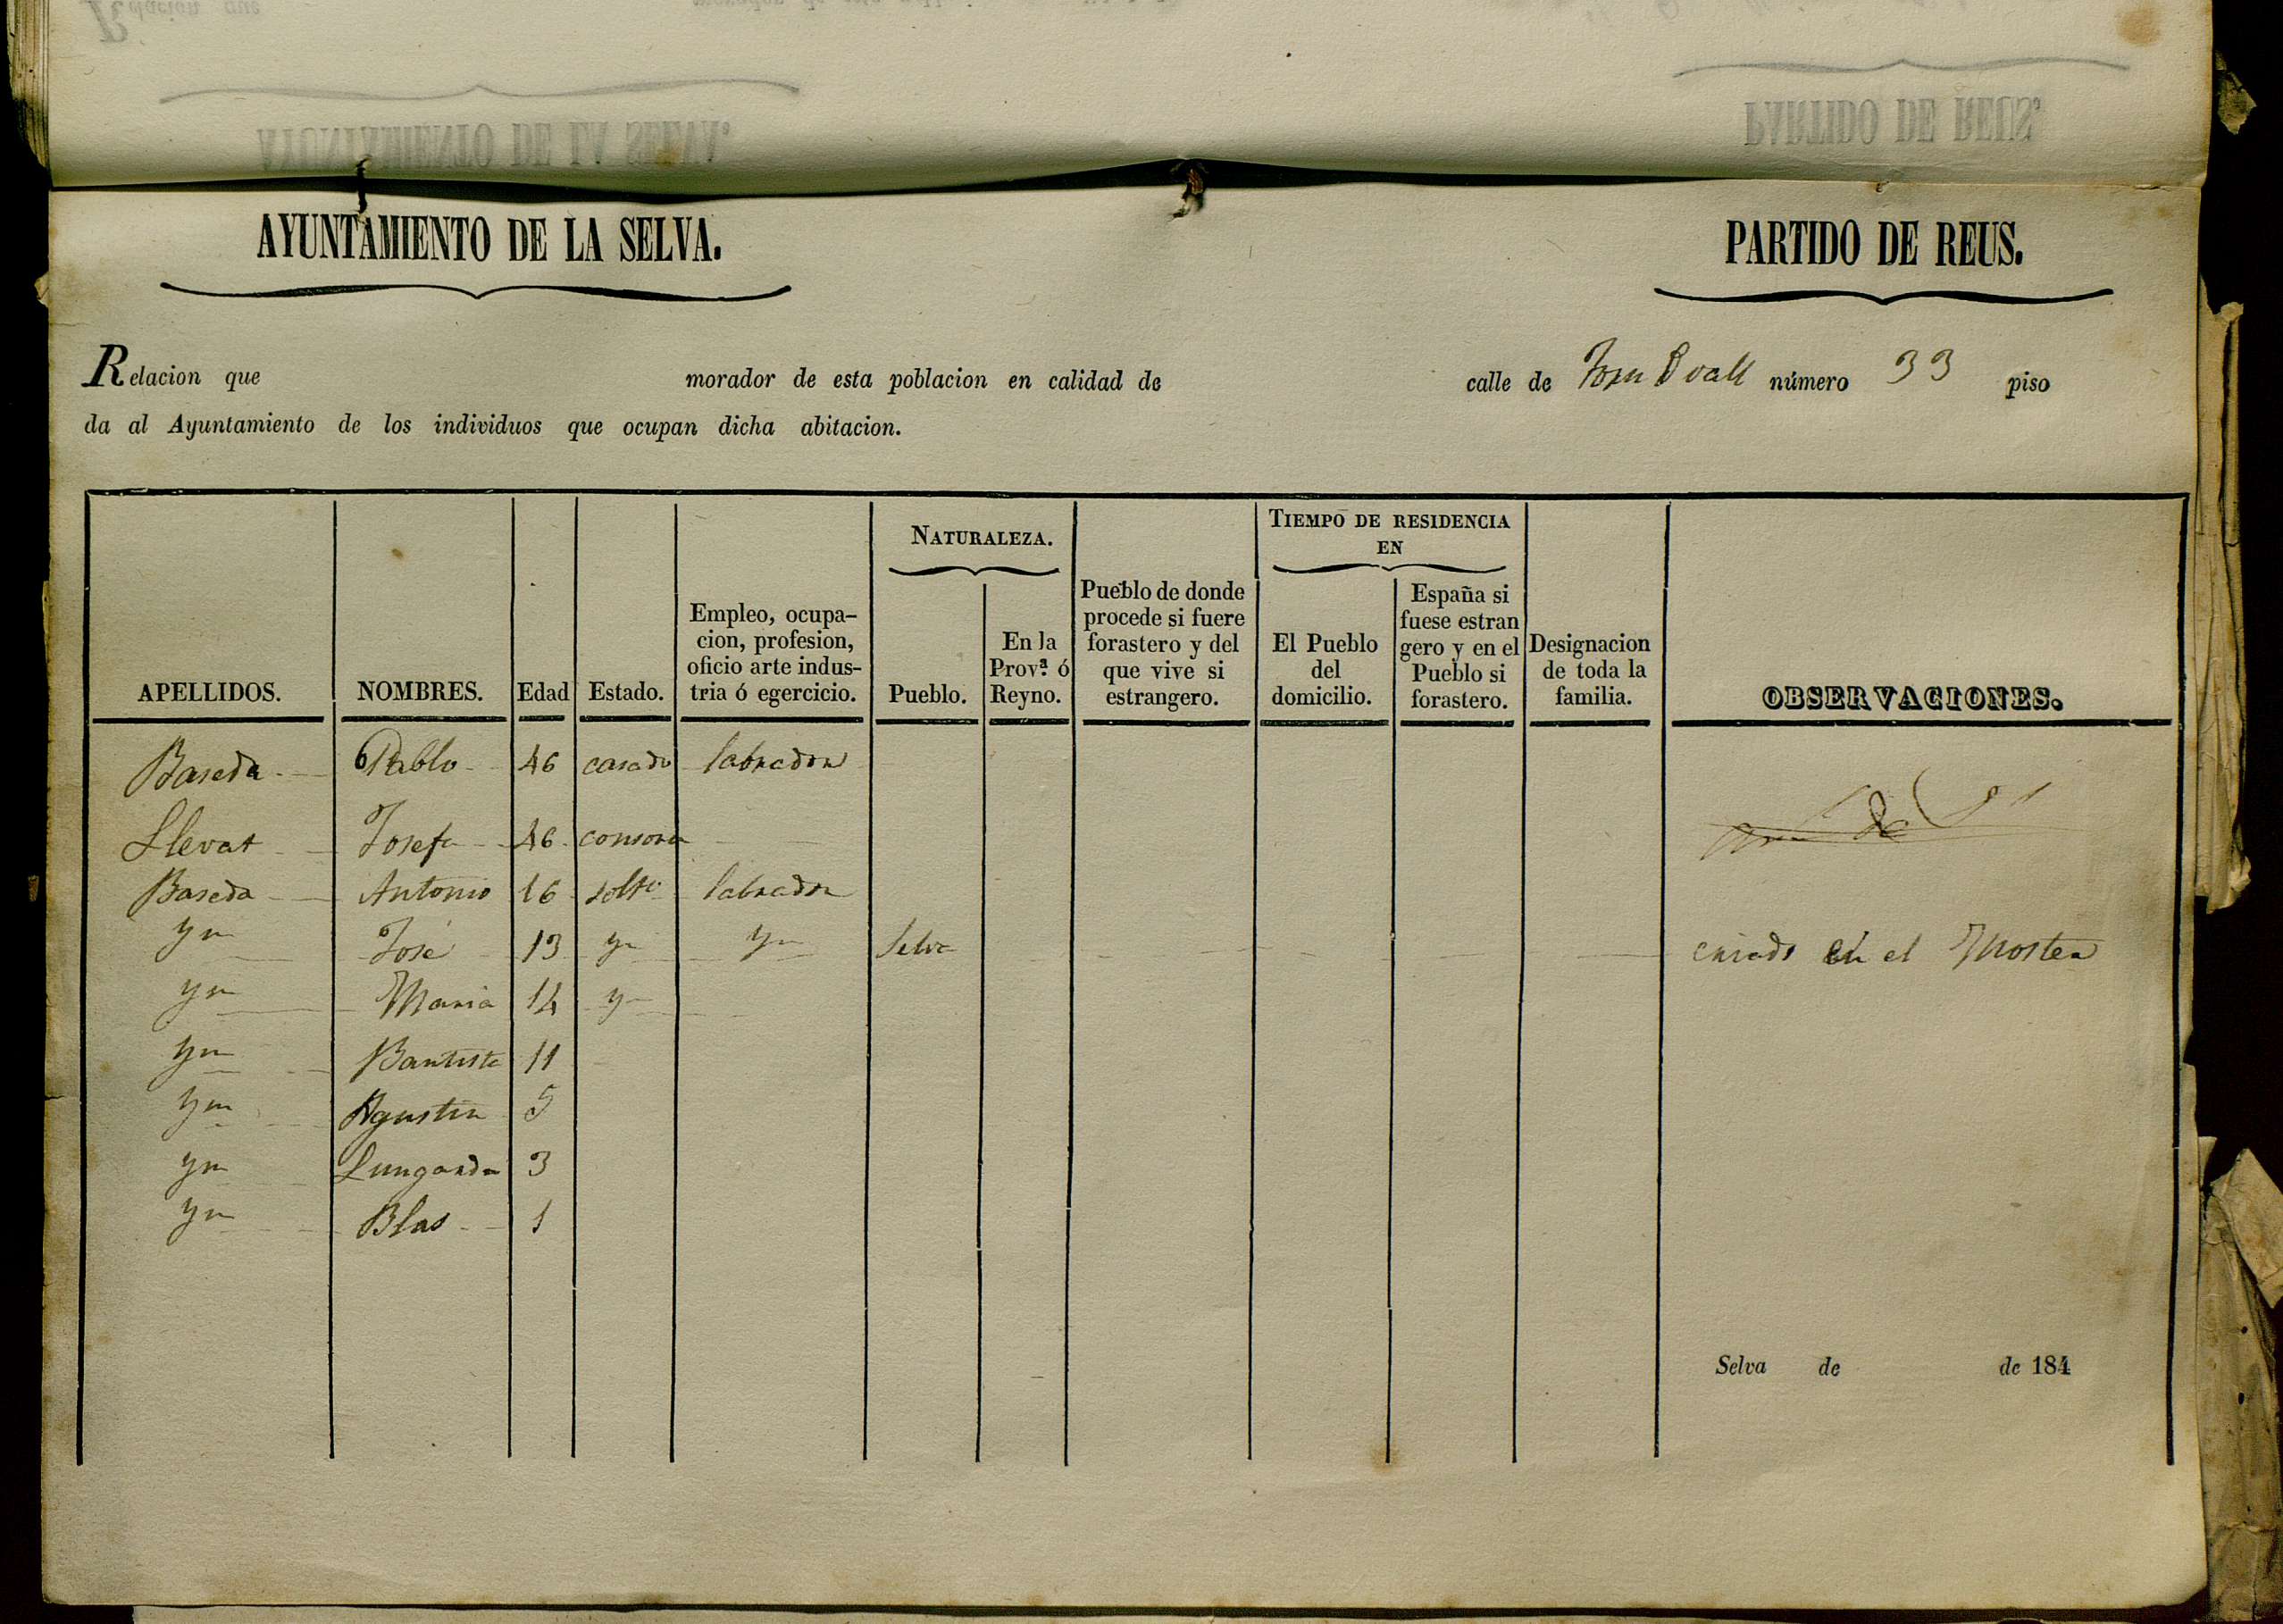 AYUNTAMIENTO DE LA SELVA. PARTIDO DE REUS.
Relacion que morador de esta poblacion en calidad de calle de número 33 piso
da al Ayuntamiento de los individuos que ocupan dicha abitacion.
NATURALEZA. TIEMPO DE RESIDENCIA EN
APELLIDOS. NOMBRES. Edad Estado. Empleo, ocupa-cion, profesion, oficio arte indus-tria ó egercicio. Pueblo. En la Provª ó Reyno. Pueblo de donde procede si fuere forastero y del que vive si estrangero. El Pueblo del domicilio. España si fuese estran gero y en el Pueblo si forastero. Designacion de toda la familia. OBSERVACIONES.
Baseda Pablo 46 casado labrador
Llevat Josefa 46 consorte
Baseda Antonio 16 solto labrador
yn José 13 yn yn Selva criado en el Moster
yn Maria 14 yn
yn Bautista 11
yn Agustin 5
yn Lungarda 3
yn Blas 1
Selva de de 184